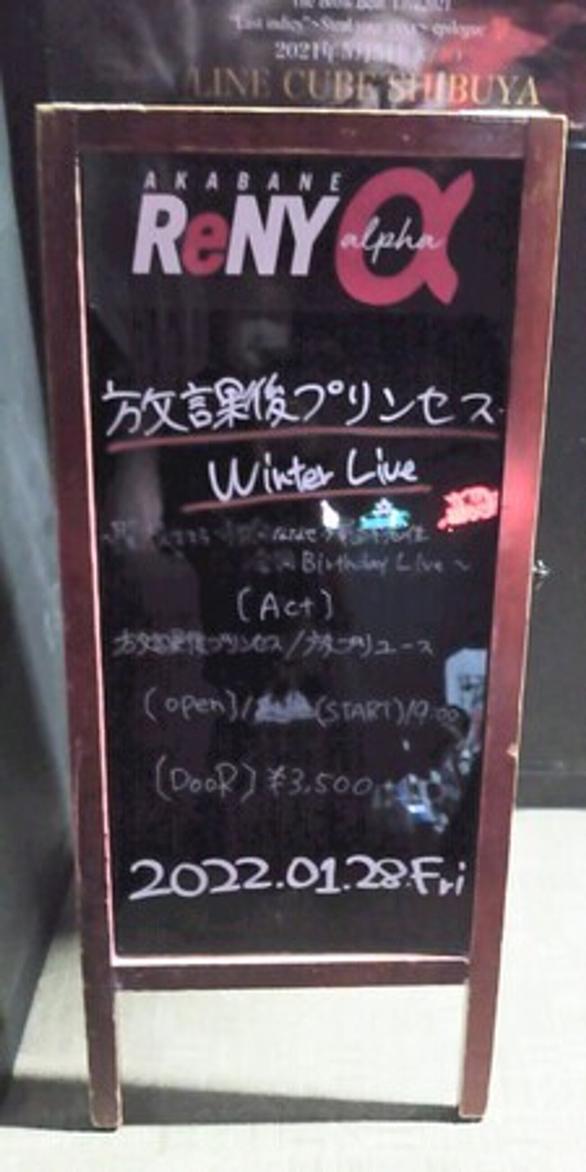 "Last indigo">Steal your
epilogue
2021年5月
LINE CUBE SHIBUYA
AKABANE
ReNY alpha
放課後プリンセス
Winter Live
Birthday Live ~
(Act)
放課後プリンセス/放プリユース
(open)/ (START)/19:00
(DOOR) ¥3,500
2022.01.28.Fri